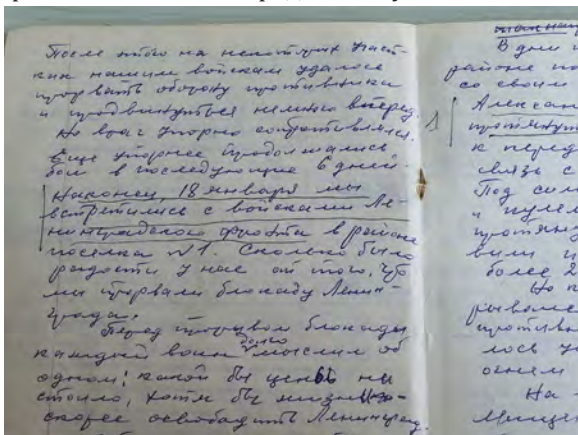 После этого на некоторых участ-
ках нашим войскам удалось
прорвать оборону противника
и продвинуться немного вперед.
Но враг упорно сопротивлялся.
Еще упорнее продолжались
бои в последующие 6 дней.
Наконец, 18 января мы
встретились с войсками Ле-
нинградского фронта в районе
поселка №1. Сколько было
радости у нас от того, что
мы прорвали блокаду Ленин-
града.
Перед прорывом блокады
каждый воин долго мыслил об
одном: какой бы ценой ни
стоило, хотя бы жизнью
скорее освободить Ленинград.
В дни
районе по
со своим
1 Алексан
протянут
к перед
связь с
Под сил
и пулем
протяну
вили и
более 2
Но п
рывалс
противн
лось у
огнем
На